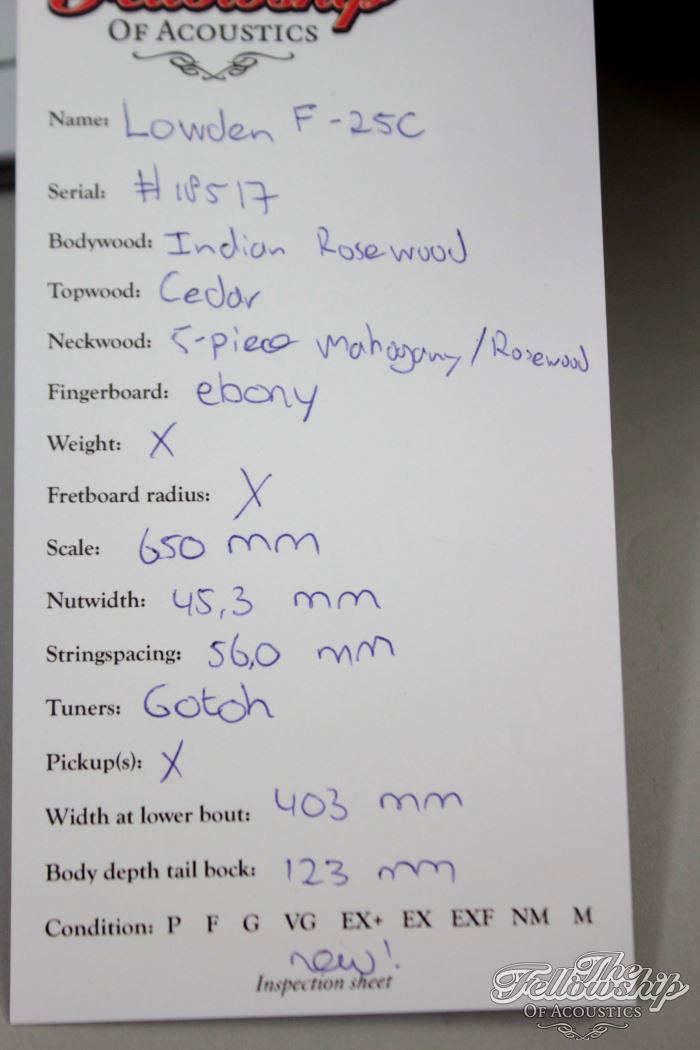 Fellowship
OF ACOUSTICS
Name: Lowden F-25C
Serial: #18517
Bodywood: Indian Rosewood
Topwood: Cedar
Neckwood: 5-piece mahogany/Rosewood
Fingerboard: ebony
Weight: X
Fretboard radius: X
Scale: 650 mm
Nutwidth: 45,3 mm
Stringspacing: 56,0 mm
Tuners: Gotoh
Pickup(s): X
Width at lower bout: 403 mm
Body depth tail bock: 123 mm
Condition: P F G VG EX+ EX EXF NM M
new!
Inspection sheet
The
Fellowship
OF ACOUSTICS